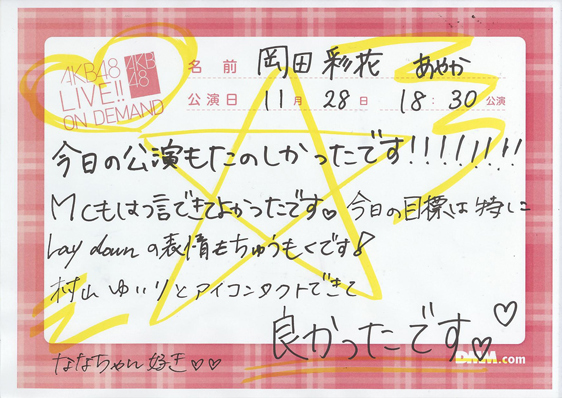 AKB48
LIVE!!
ON DEMAND
AKB
48
名前 岡田 彩花 あやか
公演日 11月28日 18:30公演
今日の公演もたのしかったです!!!!!!!!
MCもはつ言できてよかったです♥ 今日の目標は特に
Lay downの表情もちゅうもくです!
村山ゆいりとアイコンタクトできて
良かったです♥♡
ななちゃん好き♡♡
DMM.com